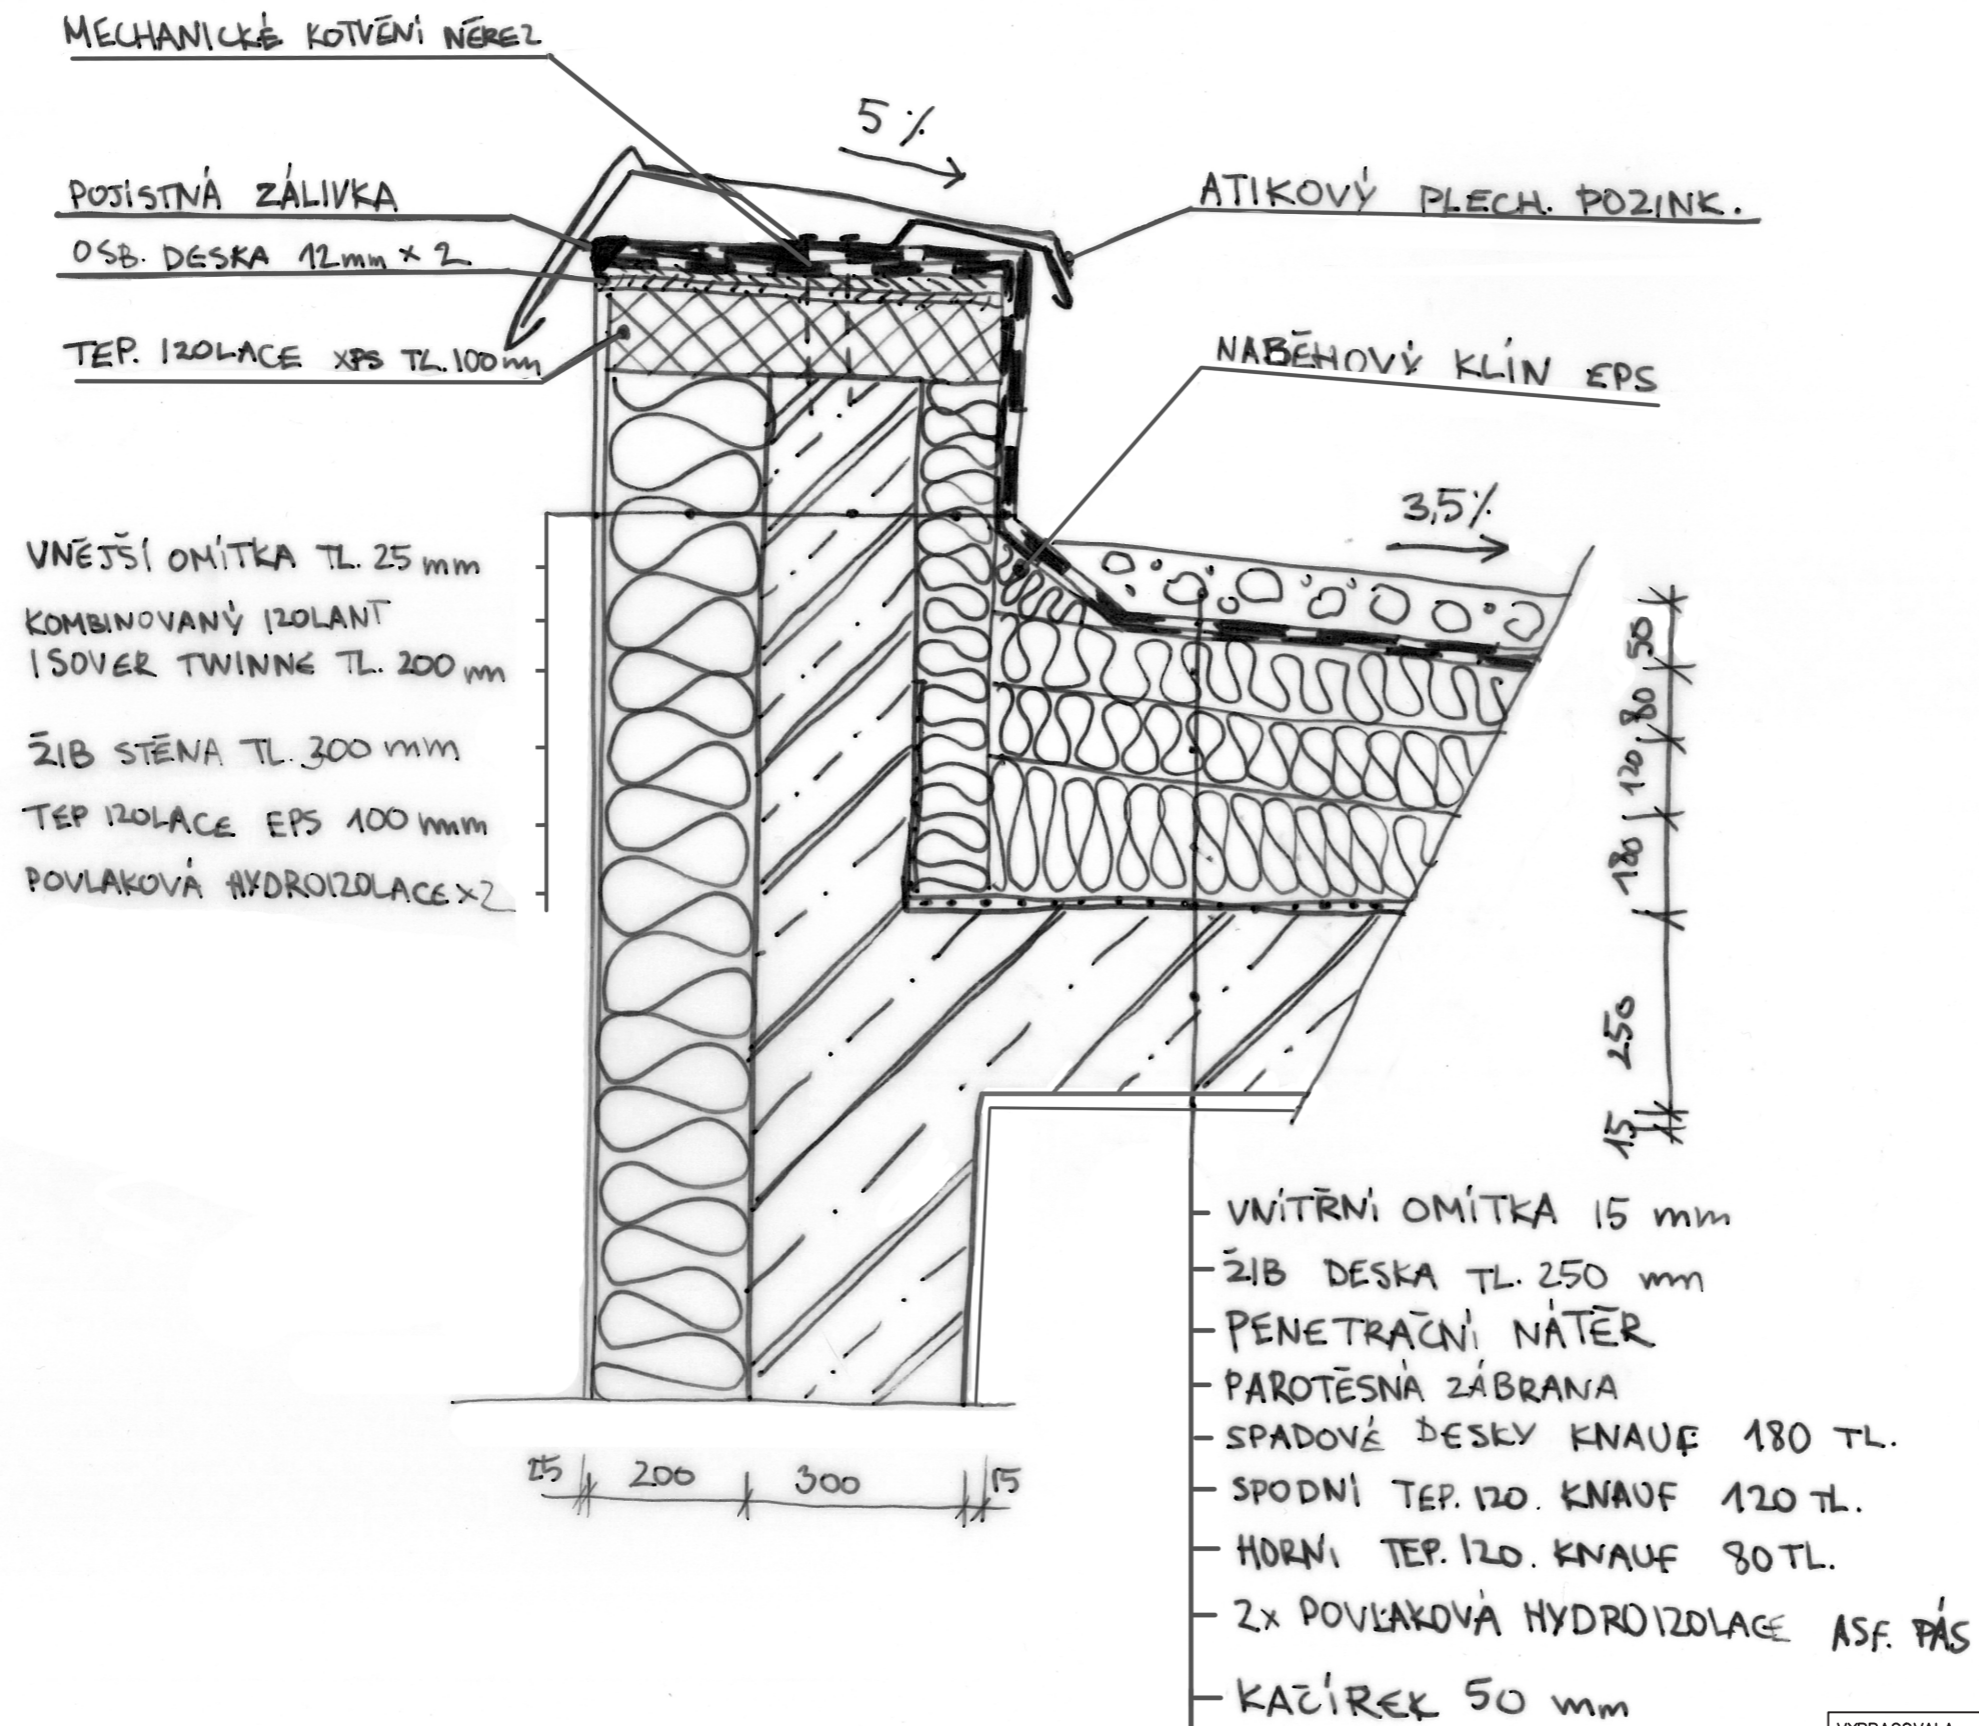 MECHANICKÉ KOTVENÍ NEREZ
5%
POJISTNÁ ZÁLIVKA
OSB. DESKA 12mm × 2
TEP. IZOLACE XPS TL. 100 mm
ATIKOVÝ PLECH. POZINK.
NABĚHOVÝ KLÍN EPS
3,5%
VNĚJŠÍ OMÍTKA TL. 25 mm
KOMBINOVANÝ IZOLANT
ISOVER TWINNE TL. 200 mm
ŽIB STĚNA TL. 300 mm
TEP IZOLACE EPS 100 mm
POVLAKOVÁ HYDROIZOLACE ×2
50
80
120
180
250
15
25 200 300 15
VNITŘNÍ OMÍTKA 15 mm
ŽIB DESKA TL. 250 mm
PENETRAČNÍ NÁTĚR
PAROTĚSNÁ ZÁBRANA
SPADOVÉ DESKY KNAUF 180 TL.
SPODNÍ TEP. IZO. KNAUF 120 TL.
HORNÍ TEP. IZO. KNAUF 80 TL.
2x POVLAKOVÁ HYDROIZOLACE ASF. PÁS
KAČÍREK 50 mm